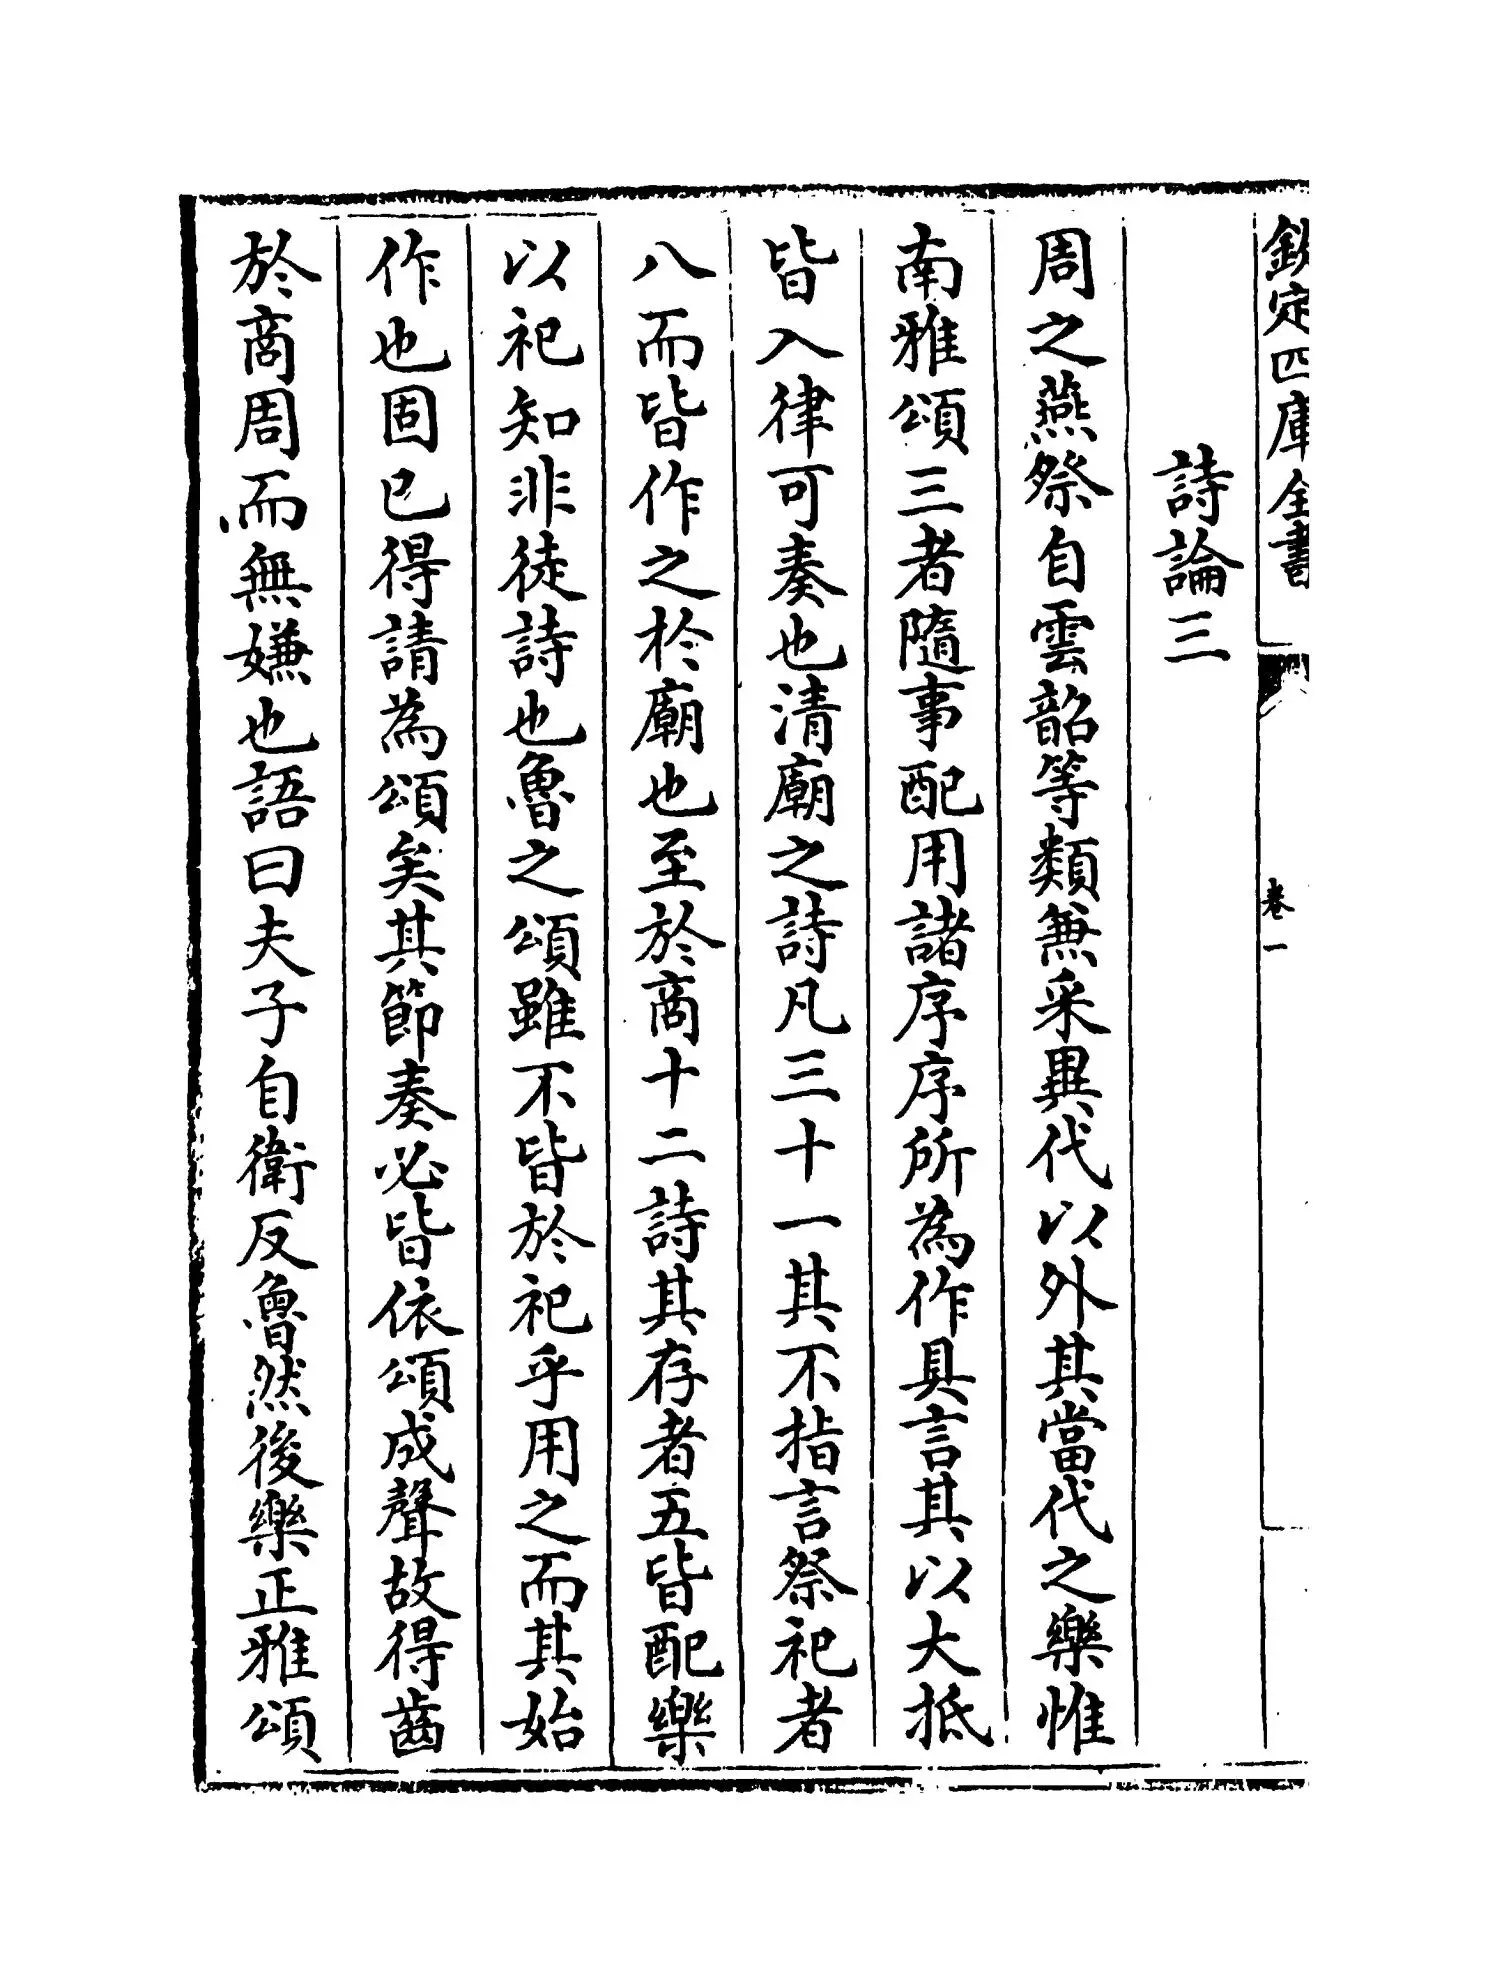 欽定四庫全書
卷一
詩論三
周之燕祭自雲韶等類兼采異代以外其當代之樂惟
南雅頌三者隨事配用諸序序所為作具言其以大抵
皆入律可奏也清廟之詩凡三十一其不指言祭祀者
八而皆作之於廟也至於商十二詩其存者五皆配樂
以祀知非徒詩也魯之頌雖不皆於祀乎用之而其始
作也固已得請為頌矣其節奏必皆依頌成聲故得齒
於商周而無嫌也語曰夫子自衛反魯然後樂正雅頌